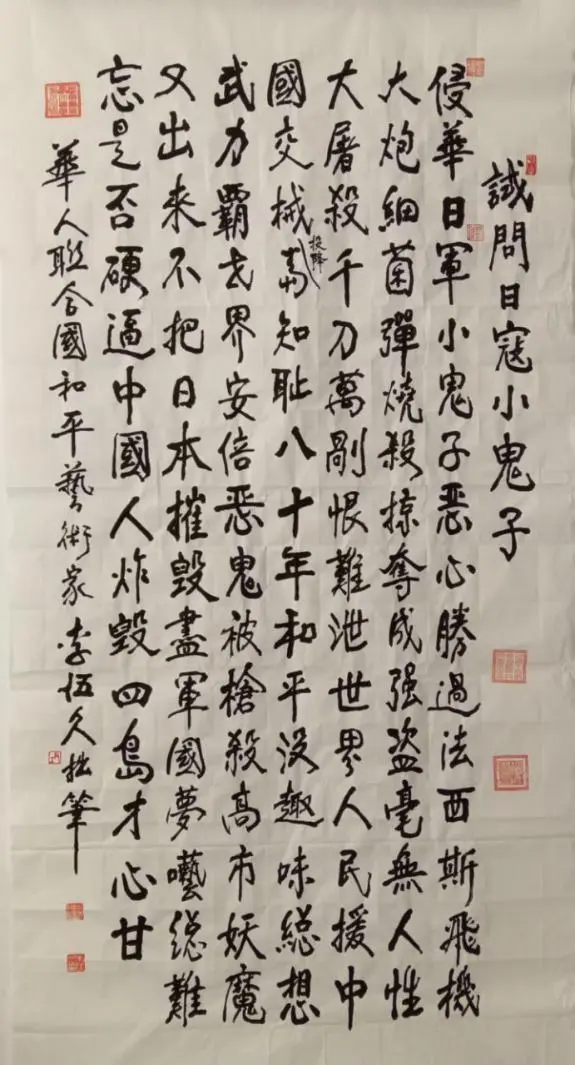 誡問日寇小鬼子
侵華日軍小鬼子恶心勝過法西斯飛機
大炮細菌彈燒殺掠奪成强盗毫無人性
大屠殺千刀萬剮恨難泄世界人民援中
國交械投降知耻八十年和平没趣味總想
武力霸世界安倍恶鬼被槍殺高市妖魔
又出來不把日本摧毁盡軍國夢囈總難
忘是否硬逼中國人炸毁四島才心甘
華人聯合國和平藝術家李伍久拙筆